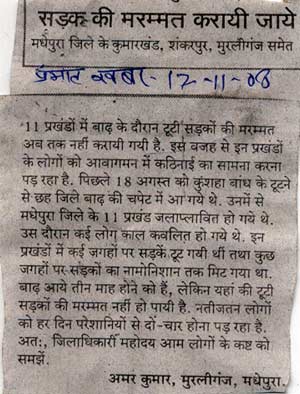 सड़क की मरम्मत करायी जाये
मधेपुरा जिले के कुमारखंड, शंकरपुर, मुरलीगंज समेत
प्रभात खबर- 12-11-08
11 प्रखंडों में बाढ़ के दौरान टूटी सड़कों की मरम्मत
अब तक नहीं करायी गयी है. इसे वजह से इन प्रखंडों
के लोगों को आवागमन में कठिनाई का सामना करना
पड़ रहा है. पिछले 18 अगस्त को कुंशहा बांध के टूटने
से छह जिले बाढ़ की चपेट में आ गये थे. उनमें से
मधेपुरा जिले के 11 प्रखंड जलाप्लावित हो गये थे.
उस दौरान कई लोग काल कवलित हो गये थे. इन
प्रखंडों में कई जगहों पर सड़कें टूट गयी थीं तथा कुछ
जगहों पर सड़कों का नामोनिशान तक मिट गया था.
बाढ़ आये तीन माह होने को हैं, लेकिन यहां की टूटी
सड़कों की मरम्मत नहीं हो पायी है. नतीजतन लोगों
को हर दिन परेशानियों से दो-चार होना पड़ रहा है.
अत:, जिलाधिकारी महोदय आम लोगों के कष्ट को
समझें.
अमर कुमार, मुरलीगंज, मधेपुरा.